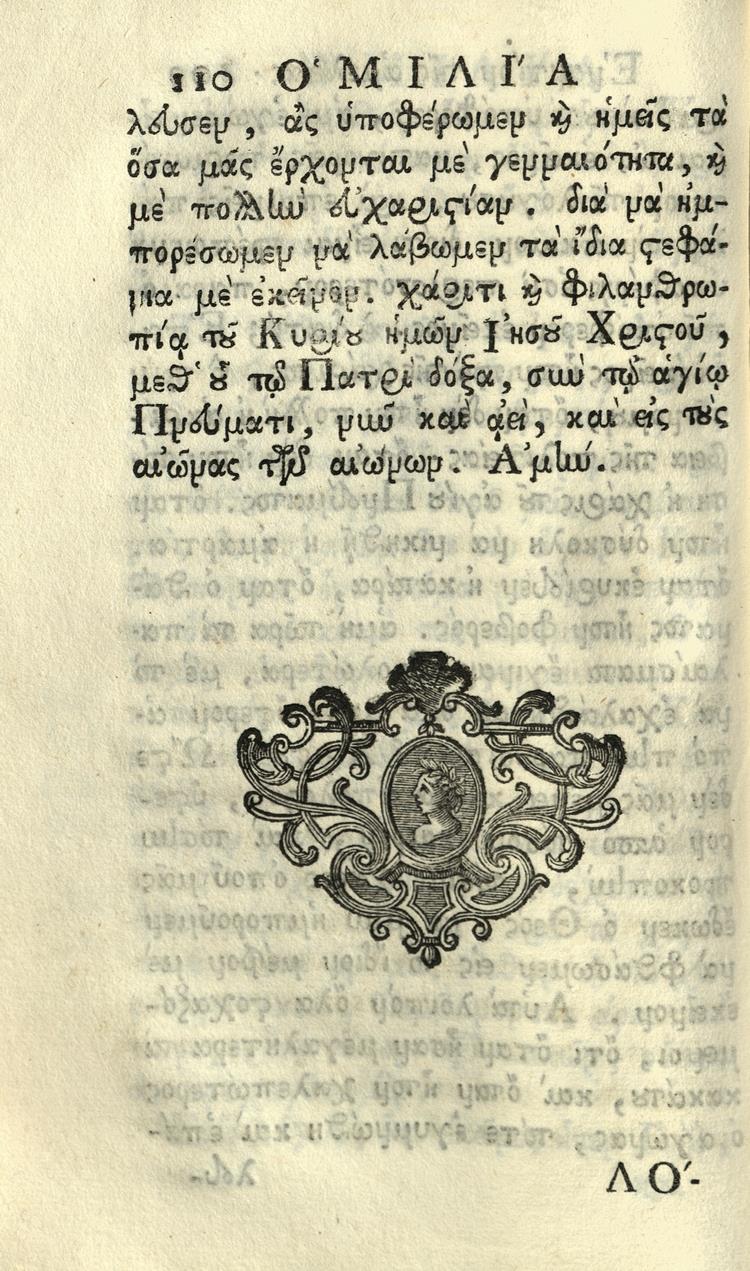 110 Ὁ ΜΙΛΙ´Α
λευσεν, ἂς ὑποφέρωμεν ϗ̀ ἡμεῖς τὰ
ὅσα μᾶς ἔρχονται μὲ γενναιότητα, ϗ̀
μὲ πολλὴν εὐχαριϛίαν. διὰ νὰ ἠμ-
πορέσωμεν νὰ λάβωμεν τὰ ἴδια ϛεφά-
νια μὲ ἐκεῖνον. χάριτι ϗ̀ φιλανθρω-
πίᾳ τȣ͂ Κυρίȣ ἡμῶν Ἰησȣ͂ Χριϛοῦ,
μεθ' ȣ̔͂ τῷ Πατρὶ δόξα, σὺν τῷ ἁγίῳ
Πνεύματι, νῦν καὶ ἀεὶ, καὶ εἰς τȣ̀ς
αἰῶνας τῶν αἰώνων. Ἀμήν.
ΛΟ´-